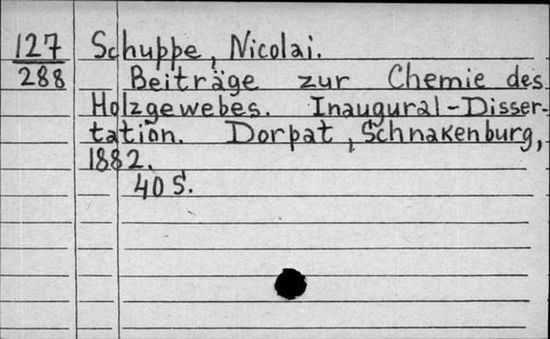 127 Schuppe, Nicolai.
288 Beiträge zur Chemie des
Holzgewebes. Inaugural-Disser-
tation. Dorpat, Schnakenburg,
1882.
40 S.